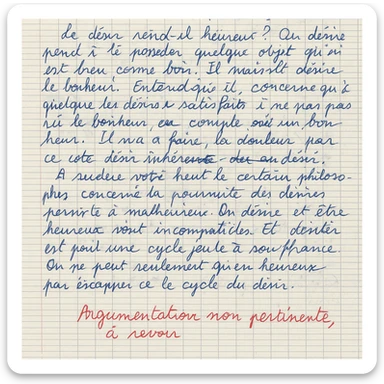 Le désir rend-il heureux ? On désire
pend i lé posseder quelque objet qu'
est breu comme bon. Il désire
le bonheur. Entend que it, concerne qu'à
quelque les désirs e satisfaits i ne pas pas
le bonheur, compte un bon
heur. Il a faire, la douleur par
ce cote désir inhére au désir.
A heut le certain philoso-
phes concerne la poursuite des désires
a malheureux. On désire et être
heureux vont incompaticles. Et
est poil une cycle à souffrance.
On ne peut seulement qu'en heureux
par éscapper ce le cycle du désir.
Argumentation non pertinente,
à revoir